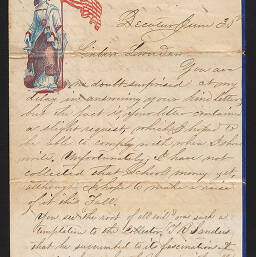 Decatur June 30th
Sister
You are
no doubt surprised at my
delay in answering your kind letter
but the fact is, your letter contained
a slight request, which I hoped to
be able to comply with when I should
write. Unfortunately, I have not
collected that school money yet,
although I hope to make a raise
of it this Fall.
You see the root of all evil was such a
temptation to the Collector, T R Sanders
that he succumbed to its fascinations &